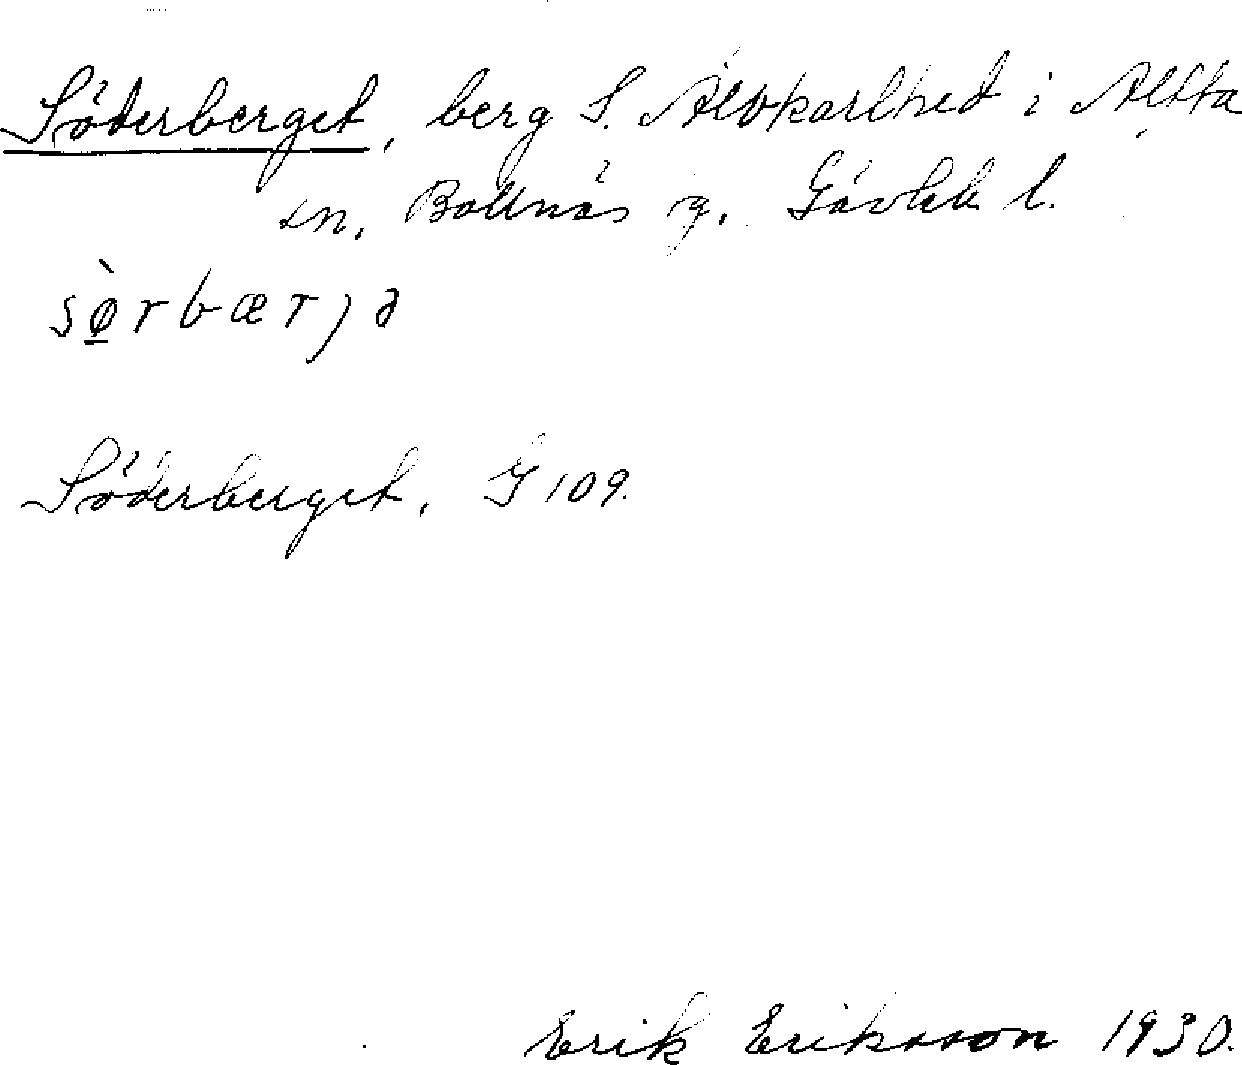 Söderberget, berg S. Älvkarlhed i Alfta
sn, Bollnäs g. Gävleb l.
sø̀rbærjə
Söderberget, G 109.
Erik Eriksson 1930.